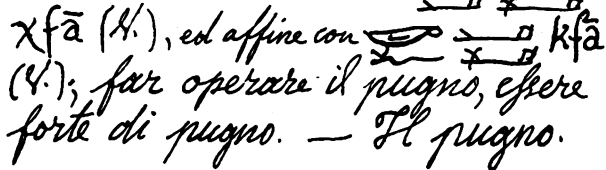 χfā (V.), ed affine con kfā
(V.); far operare il pugno, essere
forte di pugno. — Il pugno.